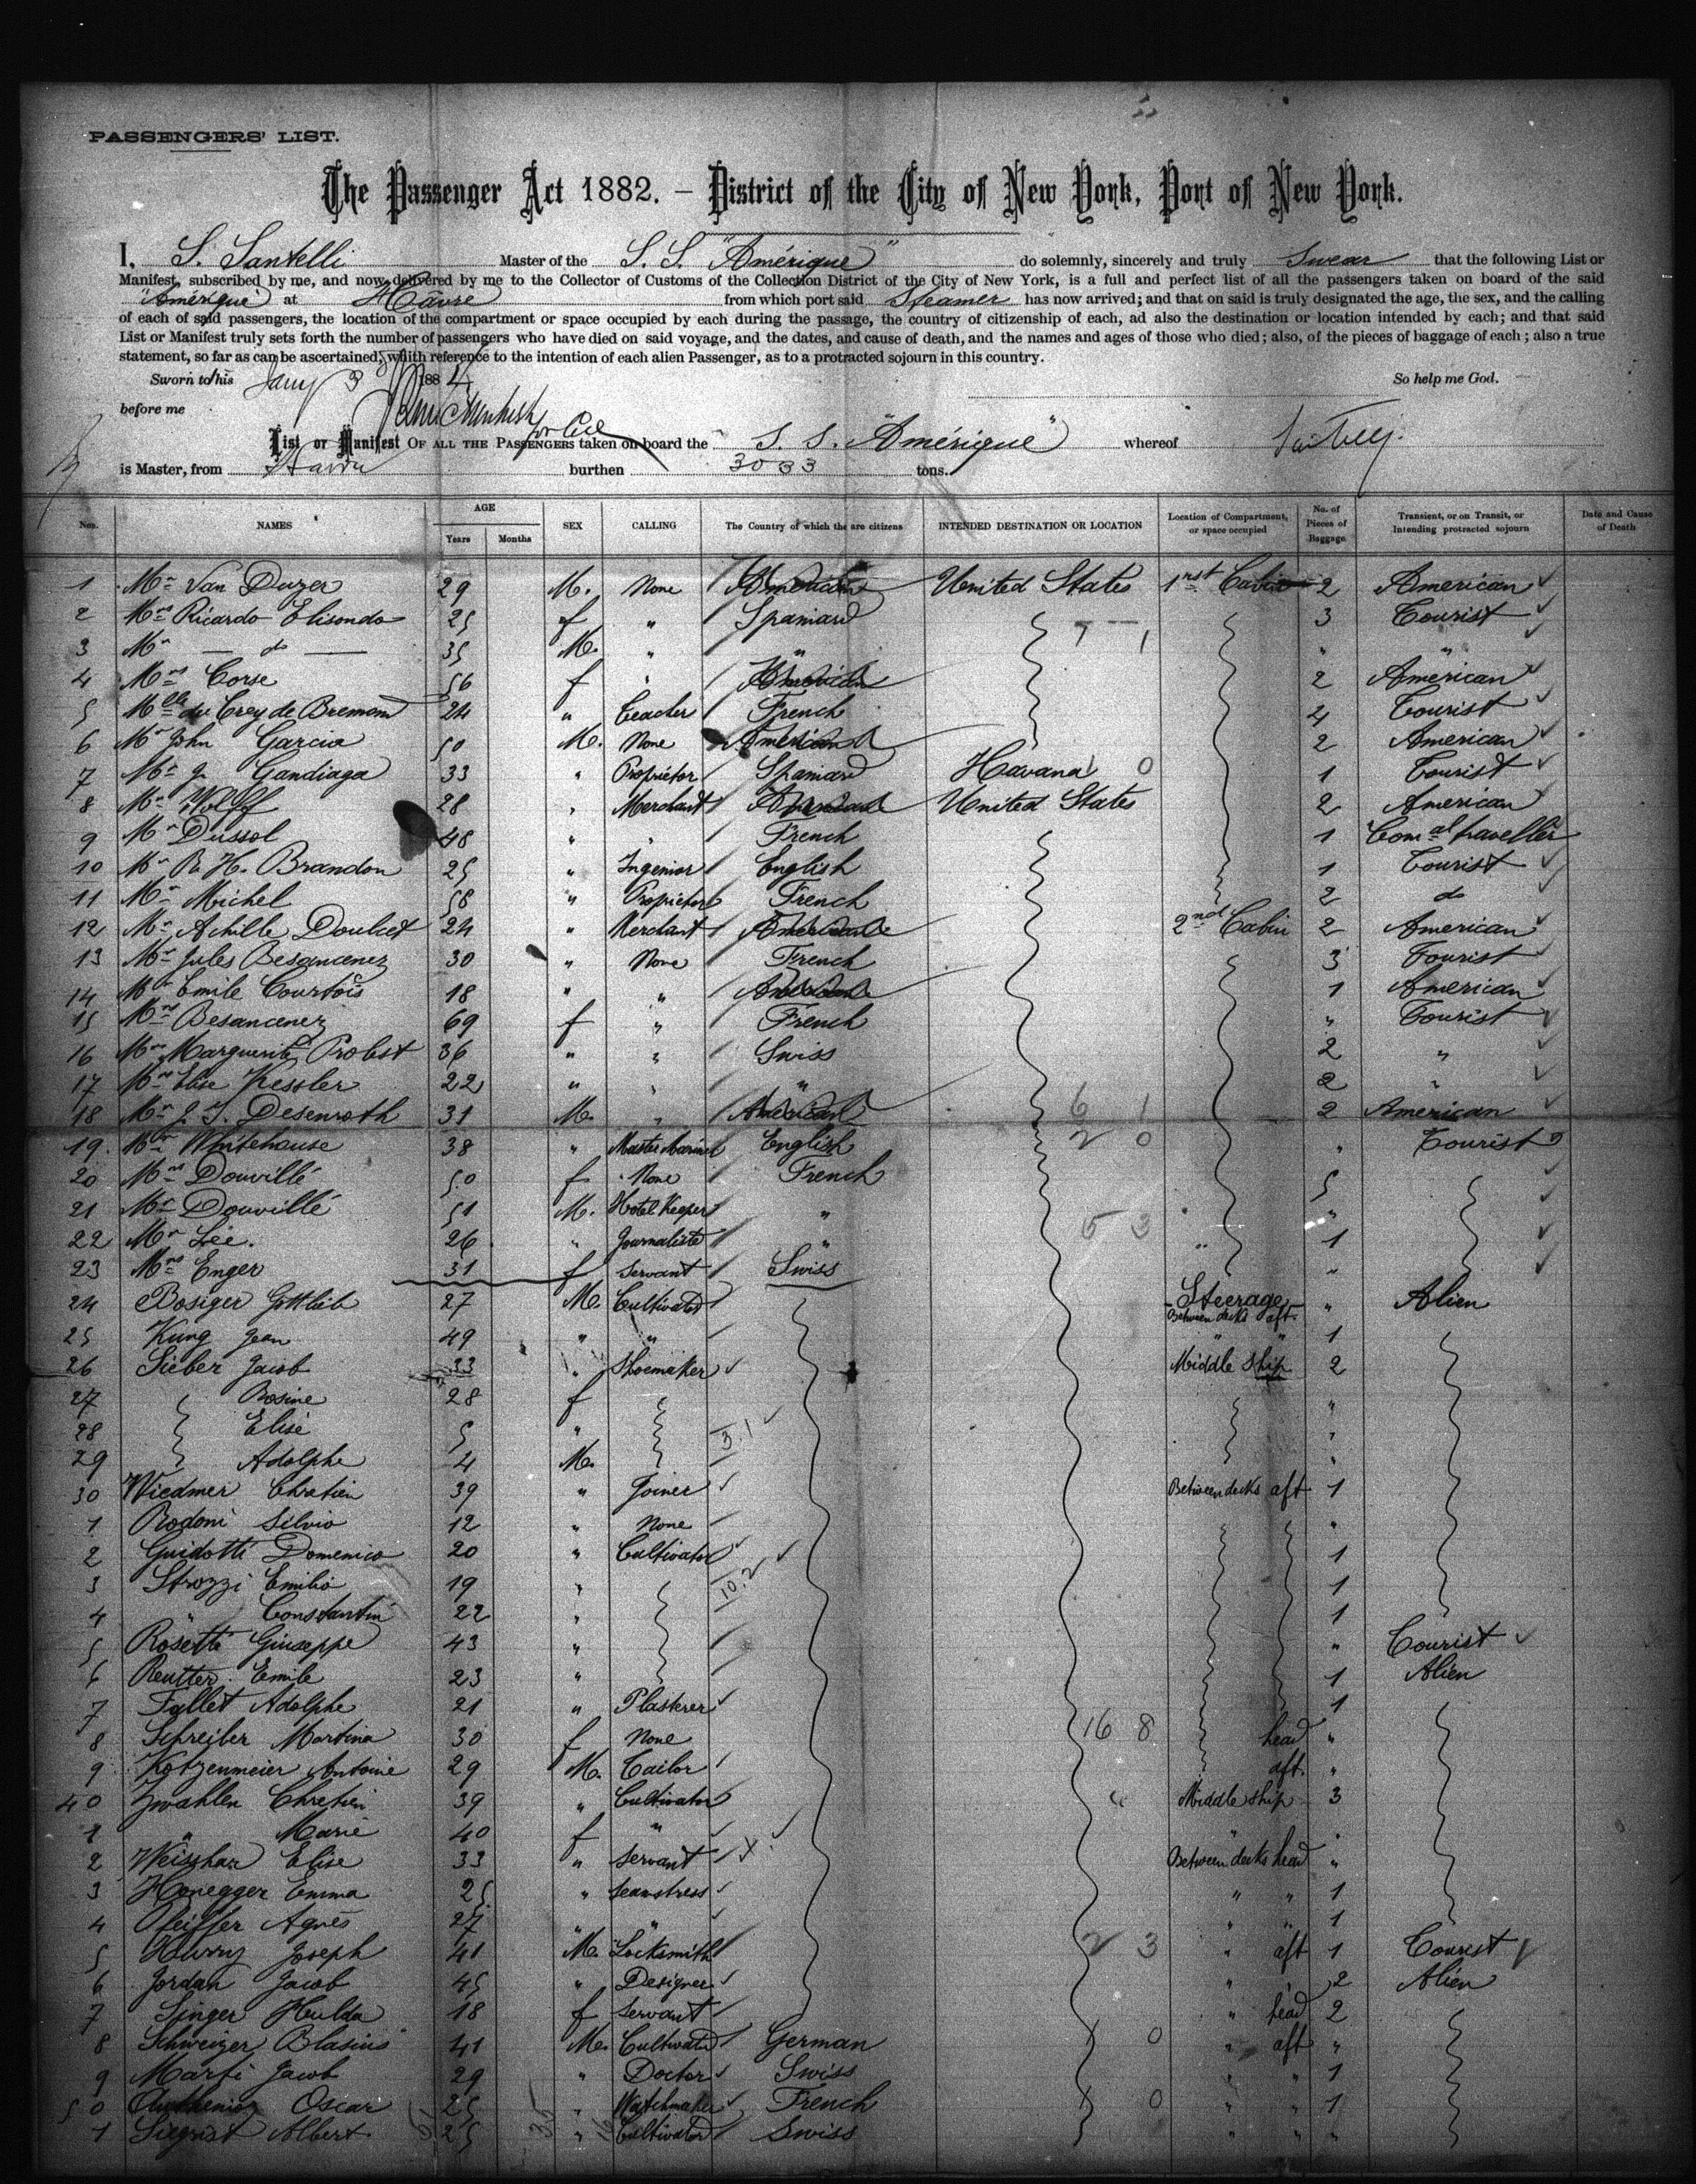 PASSENGERS' LIST.
The Passenger Act 1882. – District of the City of New York, Port of New York.
I, S. Santelli Master of the S. S. "Amérique" do solemnly, sincerely and truly Swear that the following List or
Manifest, subscribed by me, and now delivered by me to the Collector of Customs of the Collection District of the City of New York, is a full and perfect list of all the passengers taken on board of the said
"Amérique" at Hâvre from which port said Steamer has now arrived; and that on said is truly designated the age, the sex, and the calling
of each of said passengers, the location of the compartment or space occupied by each during the passage, the country of citizenship of each, ad also the destination or location intended by each; and that said
List or Manifest truly sets forth the number of passengers who have died on said voyage, and the dates, and cause of death, and the names and ages of those who died; also, of the pieces of baggage of each; also a true
statement, so far as can be ascertained, with reference to the intention of each alien Passenger, as to a protracted sojourn in this country.
Sworn to this Jany 3 1884 So help me God.
before me
List or Manifest OF ALL THE PASSENGERS taken on board the S. S. "Amérique" whereof
is Master, from Havre burthen 3033 tons.
Nos. NAMES AGE Years Months SEX CALLING The Country of which the are citizens INTENDED DESTINATION OR LOCATION Location of Compartment, or space occupied No. of Pieces of Baggage Transient, or on Transit, or Intending protracted sojourn Date and Cause of Death
1 Mr Van Duzer 29 M. None American United States 1rst Cabin 2 American
2 Mrs Ricardo Elisondo 25 f " Spaniard 3 Tourist
3 Mr — do — 35 M. " " 7 1 " "
4 Mrs Corse 56 f " 2 American
5 Mlle du Crey de Bremond 24 " Teacher French 4 Tourist
6 Mr John Garcia 50 M. None American 2 American
7 Mr J. Gandiaga 33 " Proprietor Spaniard Havana 1 0 1 Tourist
8 Mr Wolff 28 " Merchant United States 2 American
9 Mr Dussol 48 " " French 1 Comal traveller
10 Mr R. H. Brandon 25 " Ingenior English 1 Tourist
11 Mr Michel 58 " Proprietor French 2 do
12 Mr Achille Douliet 24 " Merchant American 2nd Cabin 2 American
13 Mr Jules Besancenez 30 " None French 3 Tourist
14 Mr Emile Courtois 18 " " 1 American
15 Mrs Besancenez 69 f " French " Tourist
16 Mrs Marguerite Probst 36 " " Swiss 2 "
17 Mrs Elise Kessler 22 " " " 2 "
18 Mr J. T. Desenroth 31 M. " American 6 1 2 American
19. Mr Whitehouse 38 " Master Mariner English 2 0 " Tourist
20 Mrs Douvillé 50 f None French 5
21 Mr Douvillé 51 M. Hotel Keeper " 5 3 "
22 Mr Lée. 26 " Journaliste " " 1
23 Mrs Enger 31 f Servant Swiss "
24 Bosiger Gottlieb 27 M. Cultivator Steerage Between decks aft. " Alien
25 Kung Jean 49 " " " " 1
26 Sieber Jacob 33 " Shoemaker Middle ship 2
27 Rosine 28 f "
28 Elise 5 " 3.1 "
29 Adolphe 4 M. "
30 Wiedmer Chretien 39 " Joiner Between decks aft 1
1 Rodoni Silvio 12 " None "
2 Guidotti Domenico 20 " Cultivator 1
3 Strozzi Emilio 19 " 10.2 1
4 " Constantin 22 " 1
5 Rosetti Giuseppe 43 " " Tourist
6 Reutter Emile 23 " 1 Alien
7 Fallet Adolphe 21 " Plasterer 1
8 Schreiber Martina 30 f None 16 8 head "
9 Kotzenmeier Antoine 29 M. Tailor aft. "
40 Zwahlen Chretien 39 " Cultivator " Middle ship 3
1 " Marie 40 f " " "
2 Weisshar Elise 33 " Servant Between decks head "
3 Honegger Emma 25 " Seamstress " " 1
4 Pfeiffer Agnès 27 " " " " 1
5 Joseph 41 M. Locksmith 2 3 " aft 1 Tourist
6 Jordan Jacob 45 " Designer " " 2 Alien
7 Singer Hulda 18 f Servant " head 2
8 Schweizer Blasius 41 M. Cultivator German 1 0 " aft "
9 Marti Jacob 29 " Doctor Swiss " " 1
50 Oscar 25 " Watchmaker French 1 0 " " 1
1 Siegrist Albert 25 " Cultivator Swiss " " "